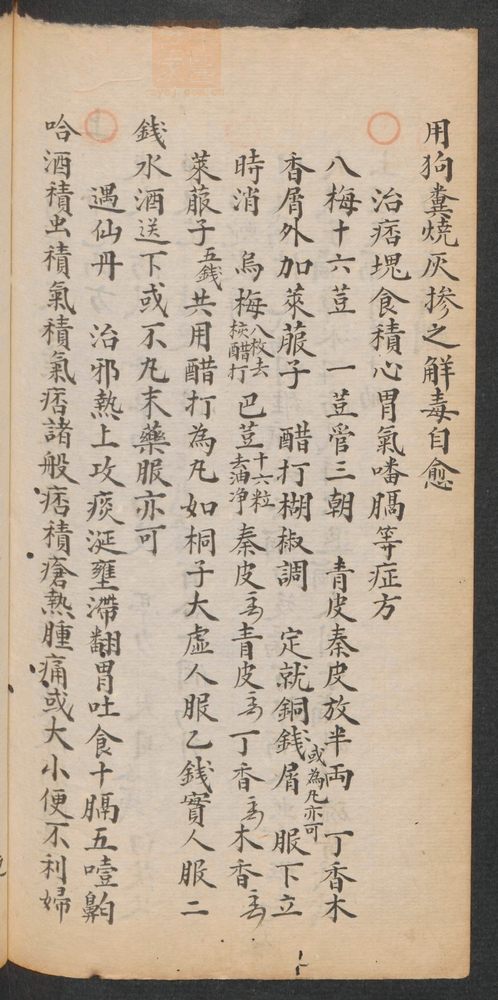 用狗糞燒灰摻之解毒自愈
治痞塊食積心胃氣噃膈等症方
八梅十六荳 一荳管三朝 青皮秦皮放半両 丁香木
香屑外加萊菔子 醋打糊椒調 定就銅錢屑或為凡亦可 服下立
時消 烏梅八枚去核醋打 巴荳十六粒去油净 秦皮 青皮 丁香 木香
萊菔子五錢共用醋打為凡如桐子大虛人服乙錢實人服二
錢水酒送下或不凡末藥服亦可
遇仙丹 治邪熱上攻痰涎壅滯翻胃吐食十膈五噎齁
哈酒積虫積氣積氣痞諸般痞積瘡熱腫痛或大小便不利婦